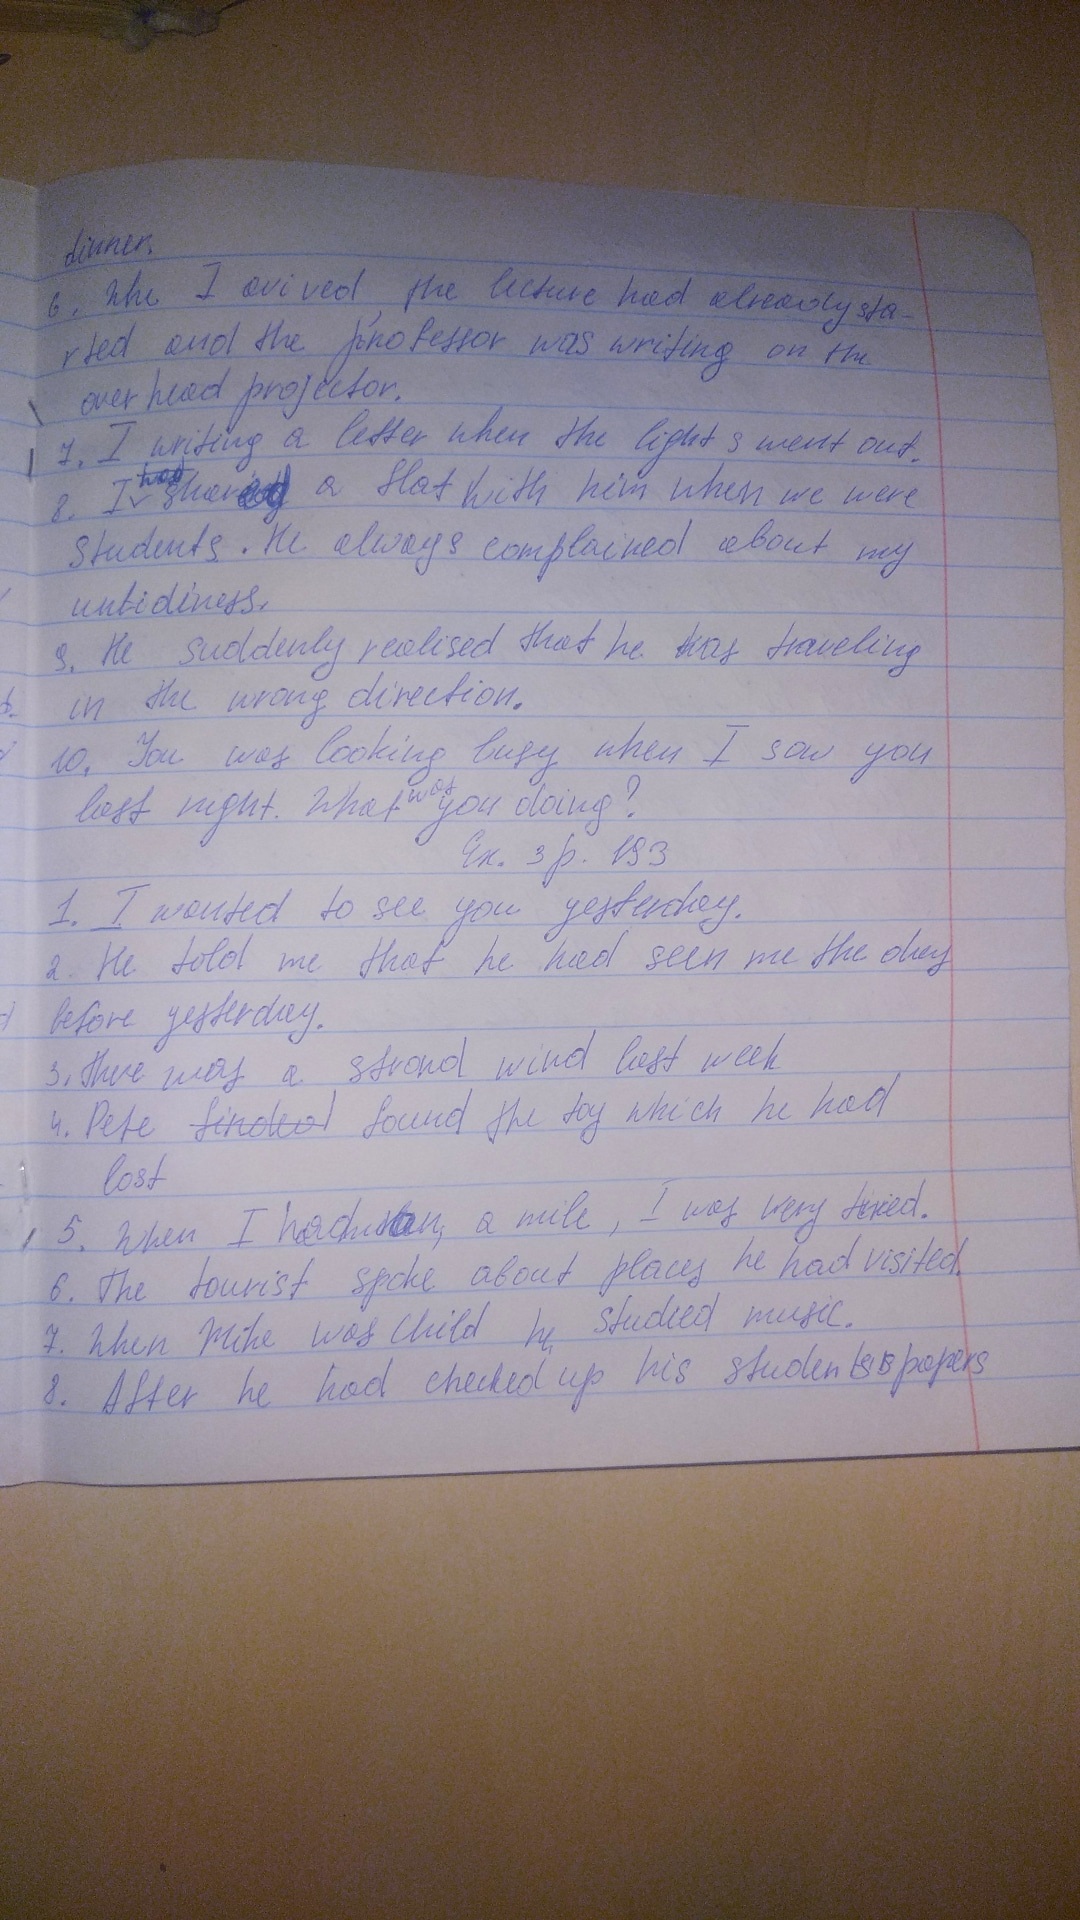 dinner.
6. Whe I arived, the lecture had already sta-
rted and the professor was writing on the
over head projector.
7. I writing a letter when the lights went out.
8. I had shared a flat with him when we were
students. He always complained about my
untidiness.
9. He suddenly realised that he was traveling
in the wrong direction.
10. You was looking busy when I saw you
last night. What was you doing?
Ex. 3 p. 193
1. I wanted to see you yesterday.
2. He told me that he had seen me the day
before yesterday.
3. There was a strond wind last week
4. Pete finded found the toy which he had
lost
5. When I had ran, a mile, I was very tired.
6. The tourist spoke about places he had visited.
7. When Mike was child he studied music.
8. After he had checked up his papers